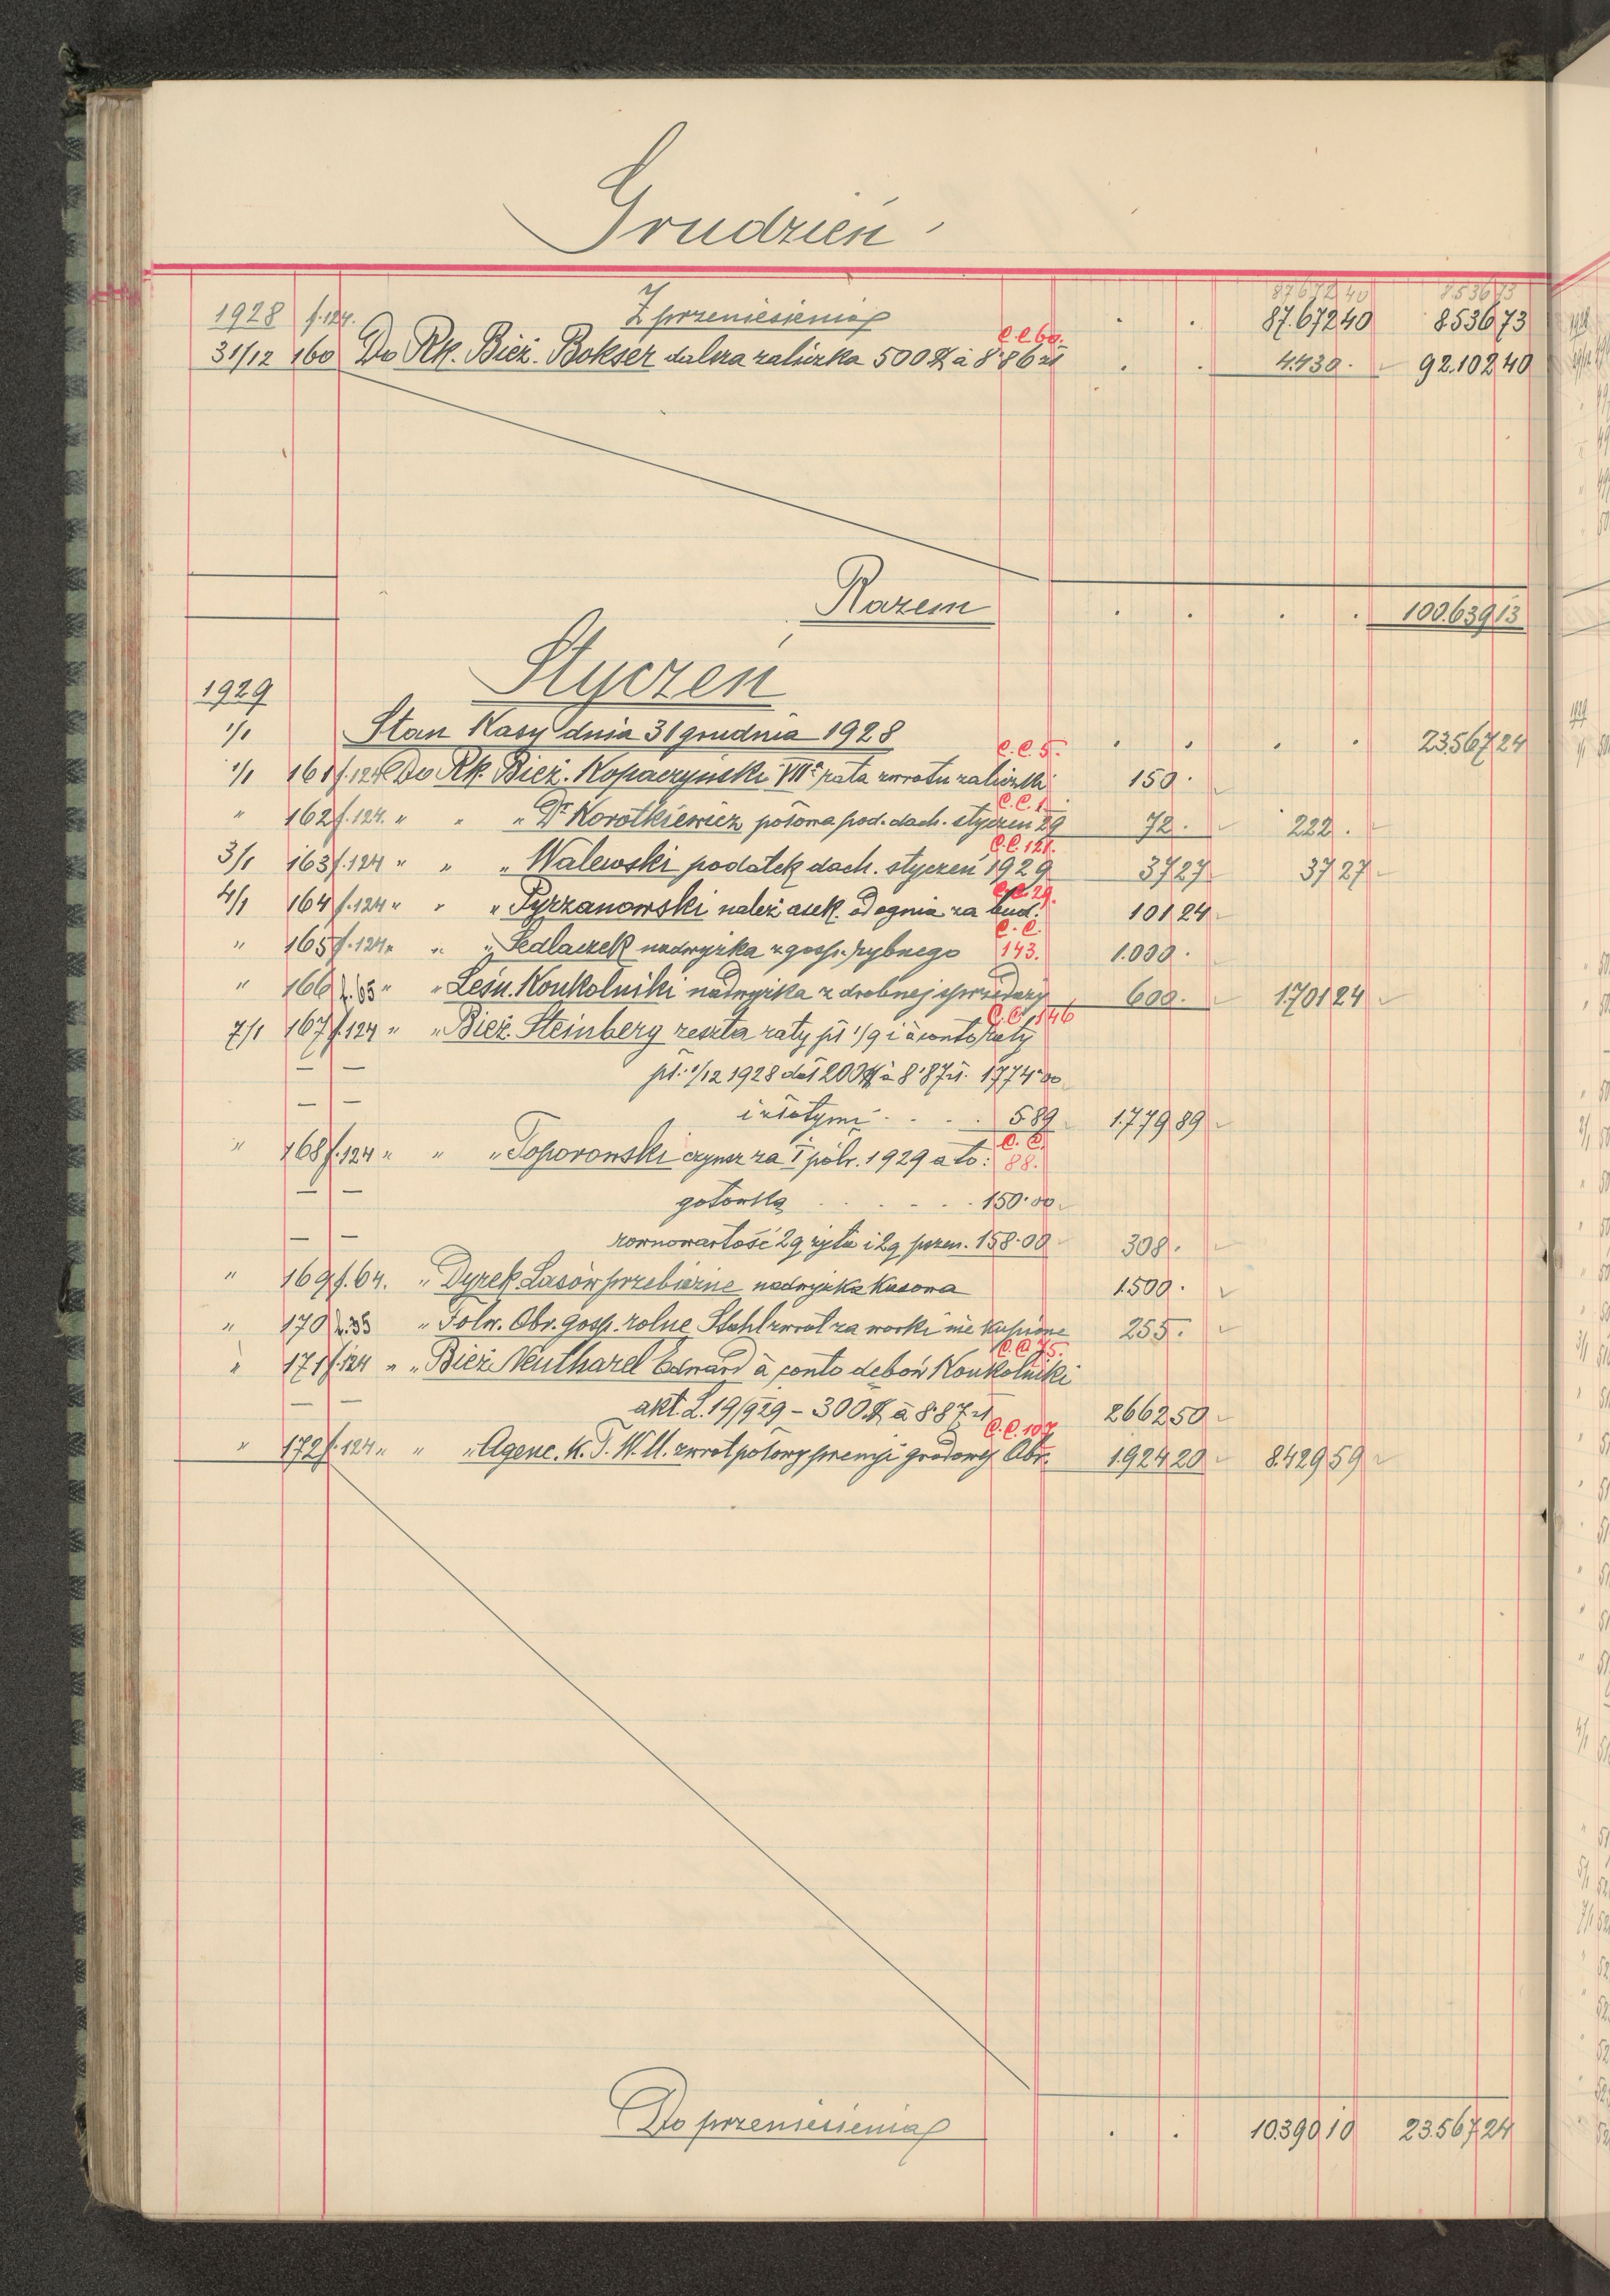 Grudzień
87672 40 8536 73
1928 f.124. Z przeniesienia . . 87.672 40 8536 73
C.C 60.
31/12 160 Do Rk. Bież. Bokser dalsza zaliczka 500 $ à 8·86 zł . . 4.430 . 92.102 40
Razem . . . . 100.639 13
Styczeń
1929
1/1 Stan Kasy dnia 31 grudnia 1928 . . . . 23.567 24
C.C. 5.
1/1 161 f.124 Do Rk. Bież. Kopaczyński VIIa rata zwrotu zaliczki 150 .
C.C. 1.
" 162 f.124. " " " Dr Korotkiewicz połowa pod. doch. styczeń 29 72 . 222 .
C.C. 121.
3/1 163 f.124 " " " Walewski podatek doch. styczeń 1929 37 27 37 27
C.C. 29.
4/1 164 f.124 " " " Pyrzanowski należ. asek. od ognia za bud. 101 24
C.C.
" 165 f.124 " " " Sedlaczek nadwyżka z gosp. rybnego 143. 1.000 .
" 166 f.65 " " Leśn. Konkolniki nadwyżka z drobnej sprzedaży 600 . 1.701 24
C.C. 146
7/1 167 f.124 " " Bież. Steinberg reszta raty pł. 1/9 i à conto raty
— — pł. 1/12 1928 dol 200 $ à 8·87 zł. 1774·00
— — i złotymi . . . 5 89 1.779 89
C.C.
" 168 f.124 " " " Toporowski czynsz za I półr. 1929 a to: 88.
— — gotówką . . . . 150·00
— — równowartość 2q żyta i 2q pszen. 158·00 308 .
" 169 f.64. " Dyrek. Lasów przebiorne nadwyżka kasowa 1.500 .
" 170 f.35 " Folw. Obr. gosp. rolne Stahl zwrot za worki nie kupione 255 .
C.C. 75.
" 171 f.124 " " Bież Neutharel Edward à conto dębów Konkolniki
— — akt. L. 19/929 – 300 $ à 8·87 zł 2662 50
C.C. 107
" 172 f.124 " " " Agenc. K.T.W.U. zwrot połowy premji gradowej Obr. 1.924 20 8.429 59
Do przeniesienia . . 10.390 10 23.567 24